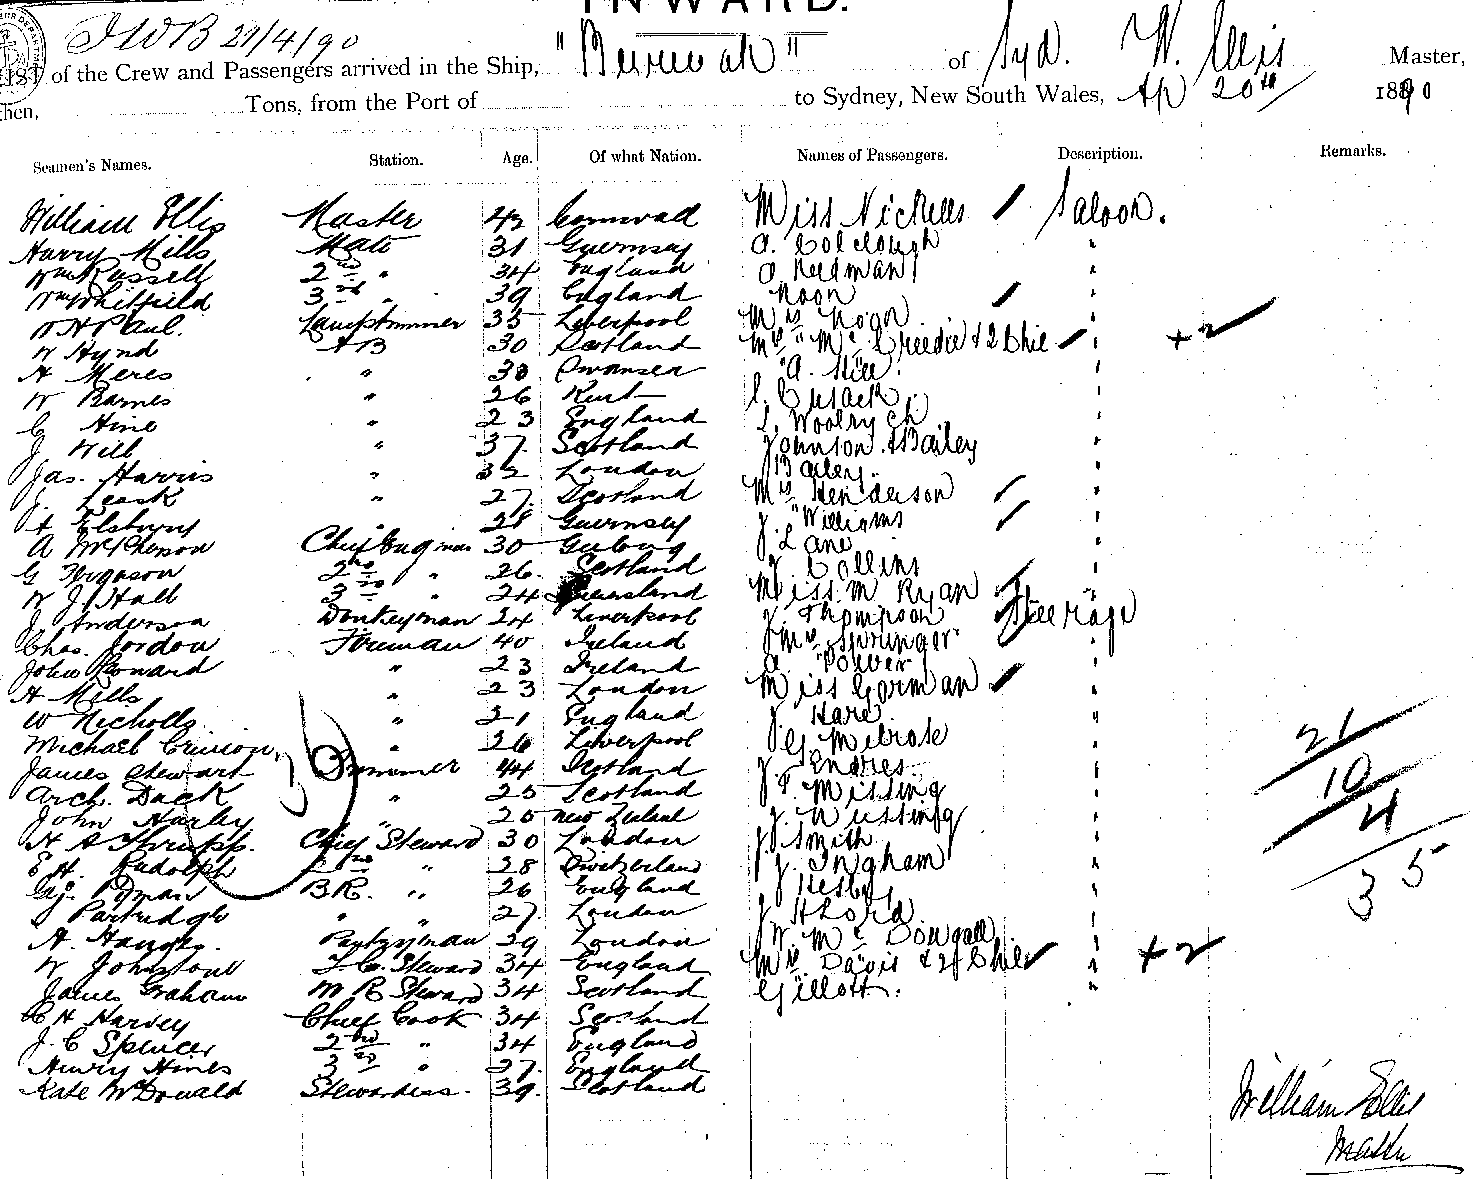 INWARD.
JWB 21/4/90
LIST of the Crew and Passengers arrived in the Ship, "Burwah" of Syd. W. Ellis Master,
Tons, from the Port of to Sydney, New South Wales, Ap 20th 1890
Seamen's Names. Station. Age. Of what Nation. Names of Passengers. Description. Remarks.
William Ellis Master 42 Cornwall Miss Nickells Saloon.
Harry Mills Mate 31 Guernsey A. Colclough "
Wm Russell 2nd " 34 England A Redman "
Wm Whitfield 3rd " 39 England Noon "
W H Paul. Lamptrimmer 35 Liverpool Mrs Noon "
W Hynd AB 30 Scotland Mrs Mc Creedie & 2 Chil " + 2
A Meres " 30 Swansea A. Hill "
W Barnes " 26 Kent Cusack "
C Hine " 23 England L. Woolrych "
J. Will " 37 Scotland Johnson. Bailey "
Jas. Harris " 32 London J Bailey "
J. Leask " 27 Scotland Mrs Henderson "
" 28 Guernsey J. Williams "
A McPherson Chief Engineer 30 J. Lane "
G Ferguson 2nd " 26 Scotland J Collins "
W J. Hall 3rd " 24 Queensland Miss M Ryan "
J. Anderson Donkeyman 24 Liverpool J. Thompson Steerage
Chas. Jordon Fireman 40 Ireland Mrs Springer "
John " 23 Ireland A. Power "
A Mills " 23 London Miss Gorman "
W Nicholls " 21 England J. Hare "
Michael " 26 Liverpool J. G. Melrose "
James Stewart Trimmer 44 Scotland J Endres "
Arch. Dack " 25 Scotland J F. Missing "
John Harley " 25 New Zealand J. Missing "
H A Thrupp. Chief Steward 30 London J Smith "
E H. Rudolph 2nd " 28 Switzerland J. Ingham "
Pyman B.R. " 26 England J "
J Partridge " " 27 London J H Lord "
A. Pantryman 29 London J W Mc Dougall "
W Johnstone F.C. Steward 34 England Mrs Davis & 2 Chil " + 2
James Graham M R Steward 34 Scotland Gillott. "
C H Harvey Chief Cook 34 Scotland
J. C Spencer 2nd " 34 England
Henry Hines 3rd " 27 England
Kate McDonald Stewardess. 39 Scotland
36
21
10
4
35
William Ellis
Master